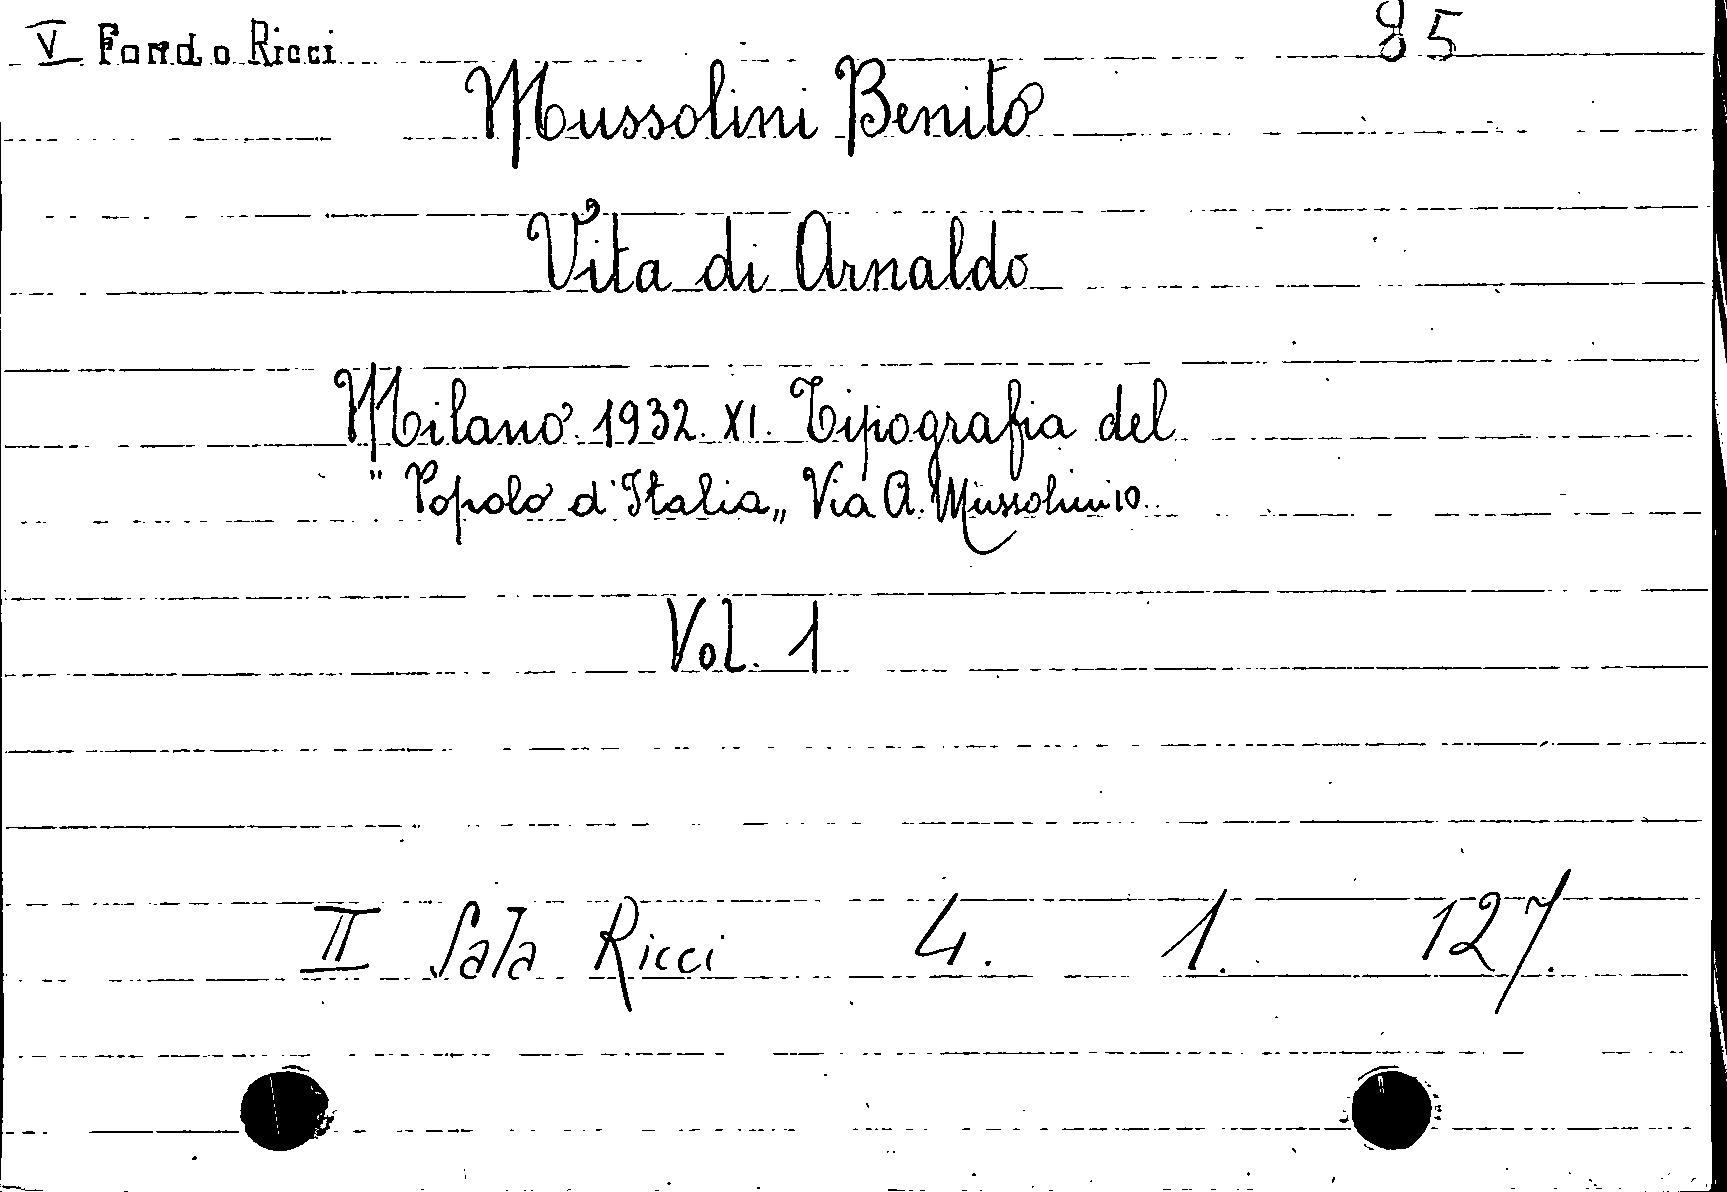 V Fondo Ricci 85
Mussolini Benito
Vita di Arnaldo
Milano 1932. XI. Tipografia del
"Popolo d'Italia„ Via A. Mussolini 10.
Vol. 1
II Sala Ricci 4. 1. 127.